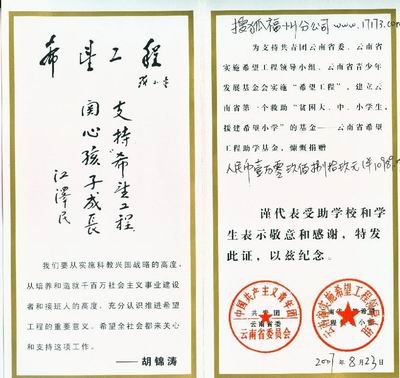 希望工程
邓小平
支持“希望工程”
関心孩子成長
江澤民
我们要从实施科教兴国战略的高度,
从培养和造就千百万社会主义事业建设
者和接班人的高度,充分认识推进希望
工程的重要意义。希望全社会都来关心
和支持这项工作。
——胡锦涛
搜狐福州分公司www.17173.com
为支持共青团云南省委、云南省
实施希望工程领导小组、云南省青少年
发展基金会实施“希望工程”,建立云
南省第一个救助“贫困大、中、小学生,
援建希望小学”的基金——云南省希望
工程助学基金,慷慨捐赠
人民币壹万零玖佰捌拾玖元
谨代表受助学校和学
生表示敬意和感谢,特发
此证,以兹纪念。
中国共产主义青年团
云南省委员会
共青团
云南省委
云南省实施希望工程领导小组
2007年8月23日